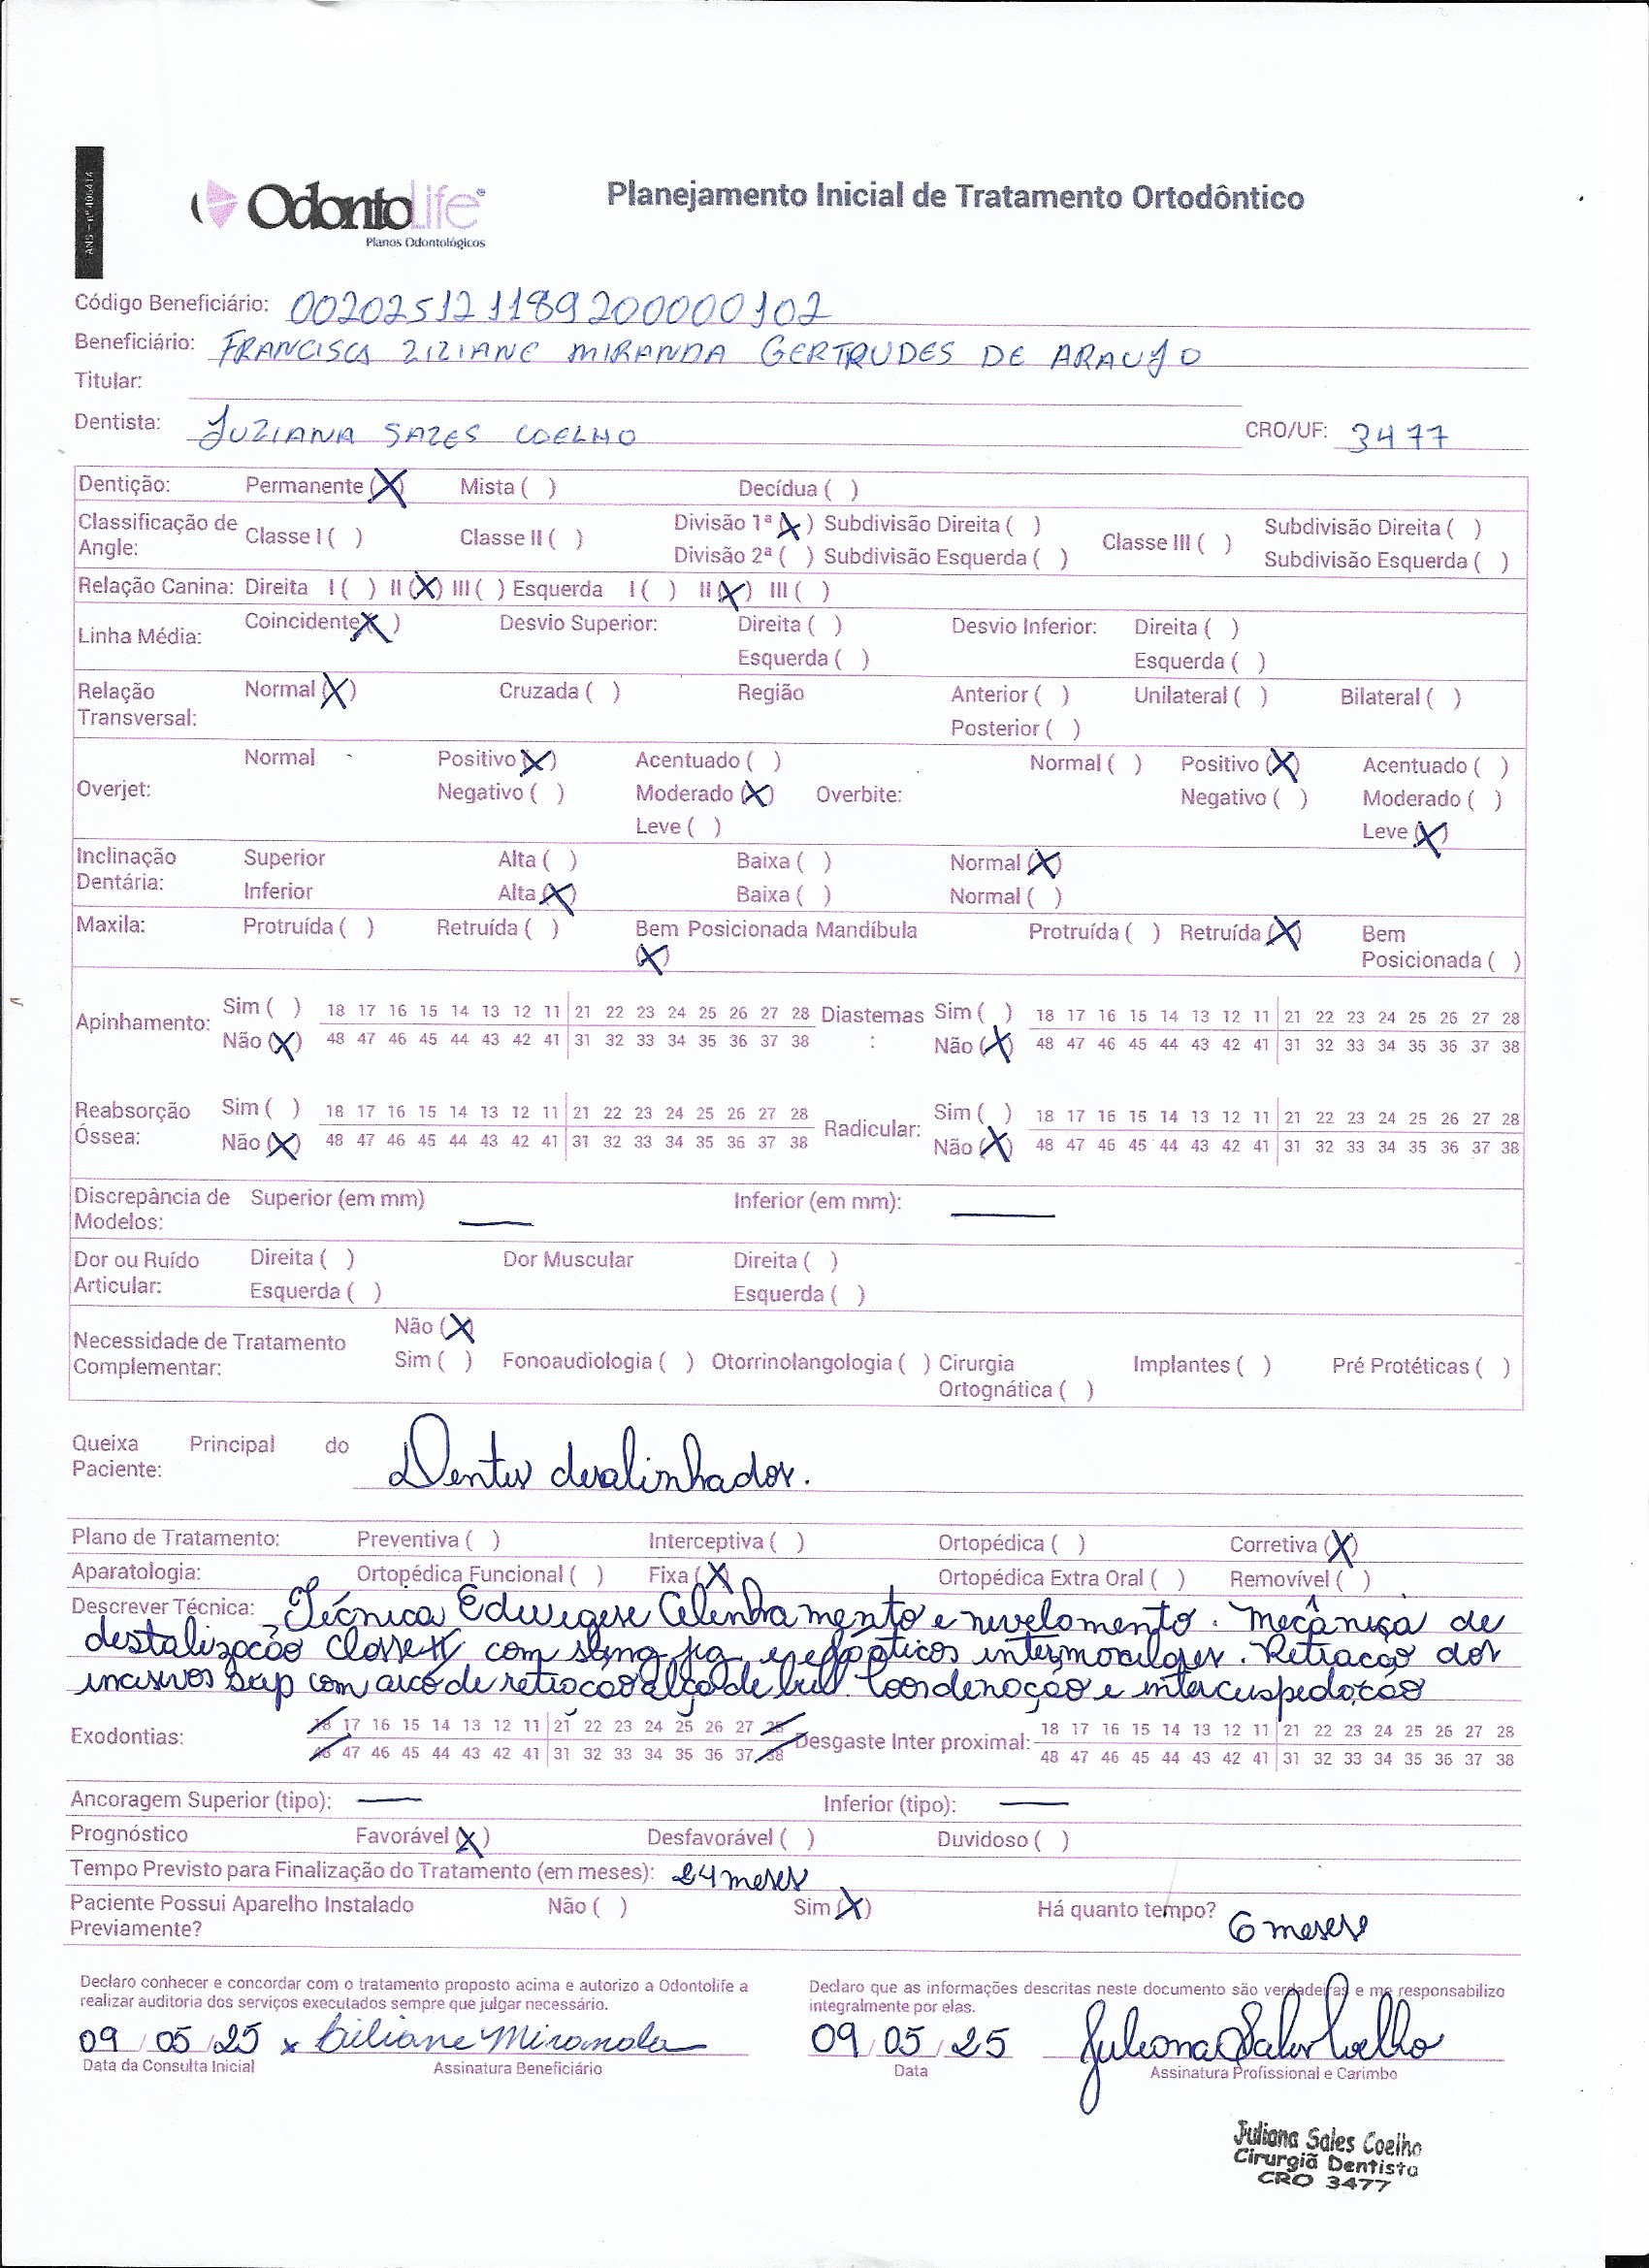 ANS - nº 406414
OdontoLife
Planos Odontológicos
Planejamento Inicial de Tratamento Ortodôntico
Código Beneficiário: 002025121189200000102
Beneficiário: FRANCISCA LILIANE MIRANDA GERTRUDES DE ARAUJO
Titular:
Dentista: JULIANA SALES COELHO CRO/UF: 3477
Dentição: Permanente (X) Mista ( ) Decídua ( )
Classificação de Angle: Classe I ( ) Classe II ( ) Divisão 1ª (X) Subdivisão Direita ( ) Classe III ( ) Subdivisão Direita ( )
Divisão 2ª ( ) Subdivisão Esquerda ( ) Subdivisão Esquerda ( )
Relação Canina: Direita I ( ) II (X) III ( ) Esquerda I ( ) II (X) III ( )
Linha Média: Coincidente (X) Desvio Superior: Direita ( ) Desvio Inferior: Direita ( )
Esquerda ( ) Esquerda ( )
Relação Transversal: Normal (X) Cruzada ( ) Região Anterior ( ) Unilateral ( ) Bilateral ( )
Posterior ( )
Overjet: Normal Positivo (X) Acentuado ( ) Overbite: Normal ( ) Positivo (X) Acentuado ( )
Negativo ( ) Moderado (X) Negativo ( ) Moderado ( )
Leve ( ) Leve (X)
Inclinação Dentária: Superior Alta ( ) Baixa ( ) Normal (X)
Inferior Alta (X) Baixa ( ) Normal ( )
Maxila: Protruída ( ) Retruída ( ) Bem Posicionada (X) Mandíbula Protruída ( ) Retruída (X) Bem Posicionada ( )
Apinhamento: Sim ( ) 18 17 16 15 14 13 12 11 21 22 23 24 25 26 27 28 Diastemas: Sim ( ) 18 17 16 15 14 13 12 11 21 22 23 24 25 26 27 28
Não (X) 48 47 46 45 44 43 42 41 31 32 33 34 35 36 37 38 Não (X) 48 47 46 45 44 43 42 41 31 32 33 34 35 36 37 38
Reabsorção Óssea: Sim ( ) 18 17 16 15 14 13 12 11 21 22 23 24 25 26 27 28 Radicular: Sim ( ) 18 17 16 15 14 13 12 11 21 22 23 24 25 26 27 28
Não (X) 48 47 46 45 44 43 42 41 31 32 33 34 35 36 37 38 Não (X) 48 47 46 45 44 43 42 41 31 32 33 34 35 36 37 38
Discrepância de Modelos: Superior (em mm) — Inferior (em mm): —
Dor ou Ruído Articular: Direita ( ) Dor Muscular Direita ( )
Esquerda ( ) Esquerda ( )
Necessidade de Tratamento Complementar: Não (X)
Sim ( ) Fonoaudiologia ( ) Otorrinolangologia ( ) Cirurgia Ortognática ( ) Implantes ( ) Pré Protéticas ( )
Queixa Principal do Paciente: Dentes desalinhados.
Plano de Tratamento: Preventiva ( ) Interceptiva ( ) Ortopédica ( ) Corretiva (X)
Aparatologia: Ortopédica Funcional ( ) Fixa (X) Ortopédica Extra Oral ( ) Removível ( )
Descrever Técnica: Técnica Edwigese Alinhamento e nivelamento. Mecânica de
destalização Classe II com sling jig e elásticos intermaxilares. Retração dos
incisivos sup com arco de retração alça de bul. Coordenação e intercuspedação
Exodontias: 18 17 16 15 14 13 12 11 21 22 23 24 25 26 27 28 Desgaste Inter proximal: 18 17 16 15 14 13 12 11 21 22 23 24 25 26 27 28
48 47 46 45 44 43 42 41 31 32 33 34 35 36 37 38 48 47 46 45 44 43 42 41 31 32 33 34 35 36 37 38
Ancoragem Superior (tipo): — Inferior (tipo): —
Prognóstico Favorável (X) Desfavorável ( ) Duvidoso ( )
Tempo Previsto para Finalização do Tratamento (em meses): 24 meses
Paciente Possui Aparelho Instalado Previamente? Não ( ) Sim (X) Há quanto tempo? 6 meses
Declaro conhecer e concordar com o tratamento proposto acima e autorizo a Odontolife a
realizar auditoria dos serviços executados sempre que julgar necessário.
Declaro que as informações descritas neste documento são verdadeiras e me responsabilizo
integralmente por elas.
09/05/25 x Liliane Miranda 09/05/25 Juliana Sales Coelho
Data da Consulta Inicial Assinatura Beneficiário Data Assinatura Profissional e Carimbo
Juliana Sales Coelho
Cirurgiã Dentista
CRO 3477